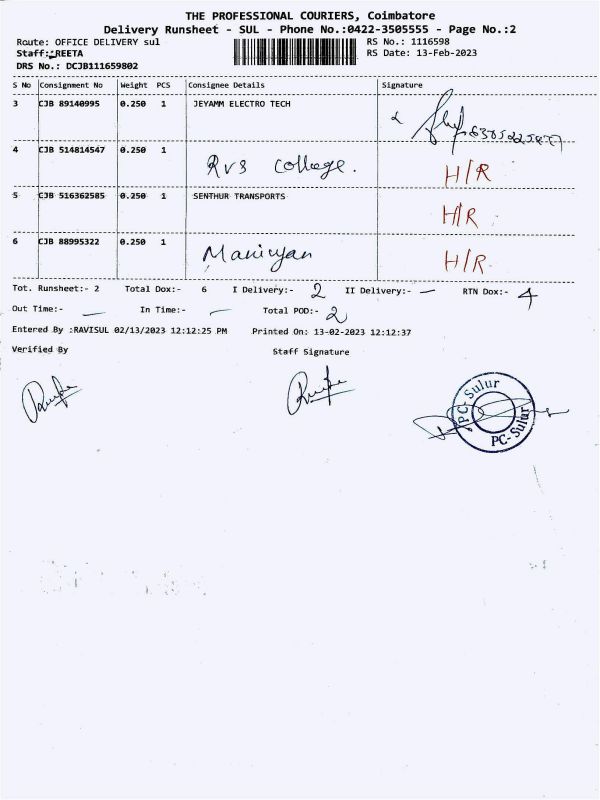 THE PROFESSIONAL COURIERS, Coimbatore
Delivery Runsheet - SUL - Phone No.:0422-3505555 - Page No.:2
Route: OFFICE DELIVERY sul RS No.: 1116598
Staff: REETA RS Date: 13-Feb-2023
DRS No.: DCJB111659802
S No Consignment No Weight PCS Consignee Details Signature
3 CJB 89140995 0.250 1 JEYAMM ELECTRO TECH
4 CJB 514814547 0.250 1 RVS College. H/R
5 CJB 516362585 0.250 1 SENTHUR TRANSPORTS H/R
6 CJB 88995322 0.250 1 H/R
Tot. Runsheet:- 2 Total Dox:- 6 I Delivery:- 2 II Delivery:- — RTN Dox:- 4
Out Time:- — In Time:- — Total POD:- 2
Entered By :RAVISUL 02/13/2023 12:12:25 PM Printed On: 13-02-2023 12:12:37
Verified By Staff Signature
PC-Sulur
PC-Sulur